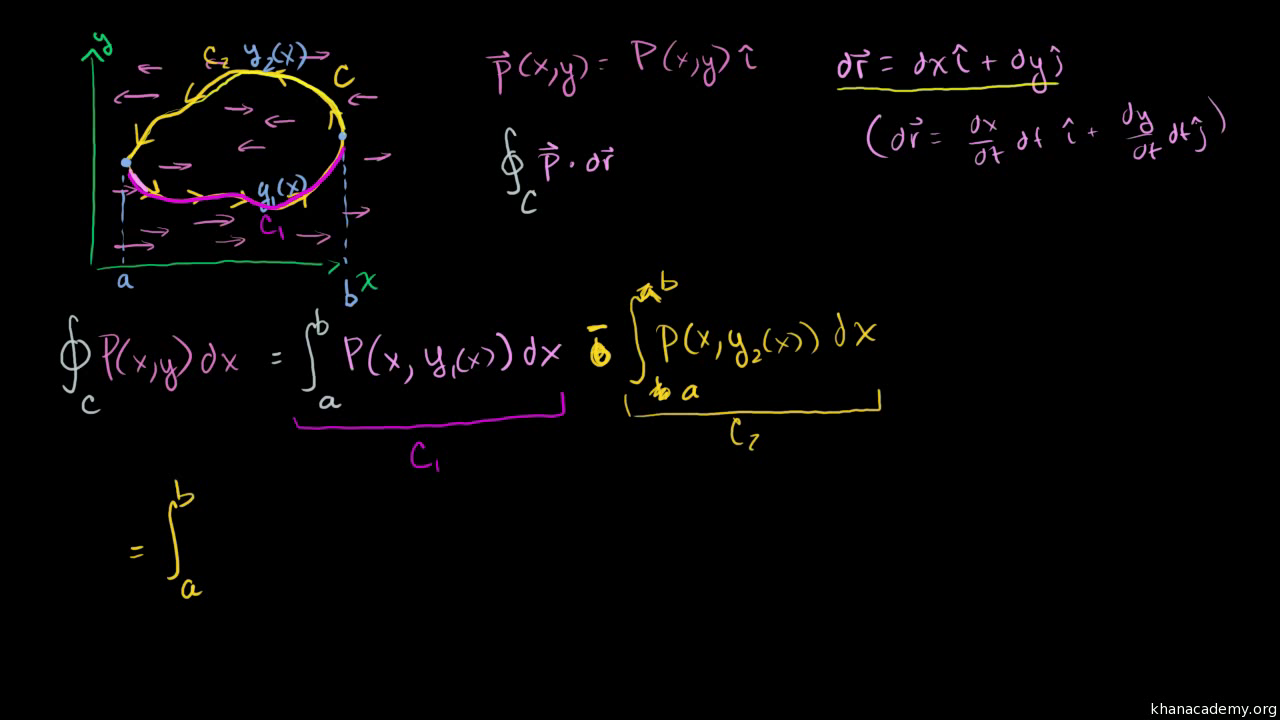 y
C₂ y₂(x) C
y₁(x)
C₁
a b x
P⃗(x,y) = P(x,y) î
dr⃗ = dx î + dy ĵ
(dr⃗ = dx/dt dt î + dy/dt dt ĵ)
∮_C P⃗ · dr⃗
∮_C P(x,y) dx = ∫_a^b P(x, y₁(x)) dx − ∫_a^b P(x, y₂(x)) dx
C₁ C₂
= ∫_a^b
khanacademy.org